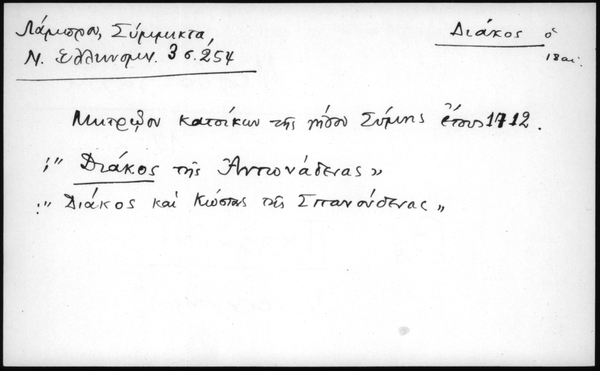 Λάμπρου, Σύμμικτα,
Ν. Ελληνομν. 3 σ. 254
Διάκος ὁ
18 αἰ.
Μητρῷον κατοίκων τῆς νήσου Σύμης ἔτους 1712.
:" Διάκος τῆς Ἀντωνάδενας"
:" Διάκος καὶ Κώστας τῆς Σπανούδενας"